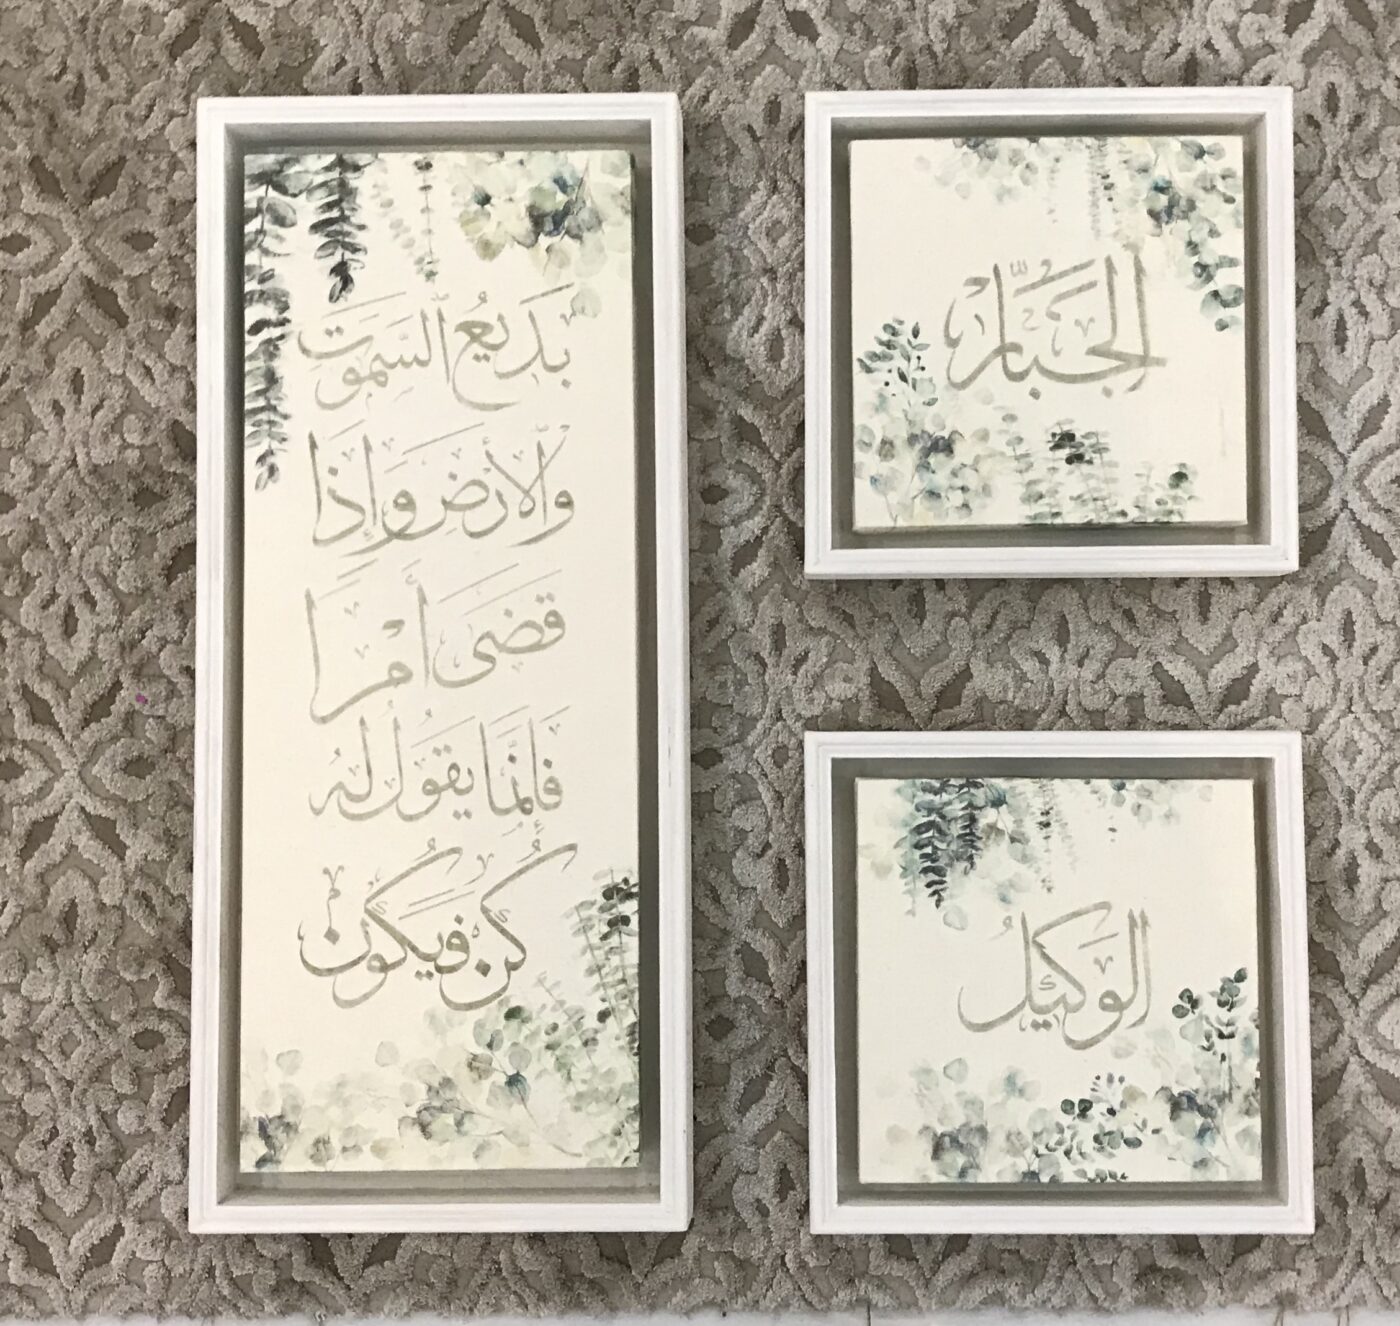 بَدِيعُ ٱلسَّمَوَتِ
وَٱلْأَرْضِ وَإِذَا
قَضَى أَمْرًا
فَإِنَّمَا يَقُولُ لَهُ
كُنْ فَيَكُونُ
الْجَبَّارُ
الْوَكِيلُ